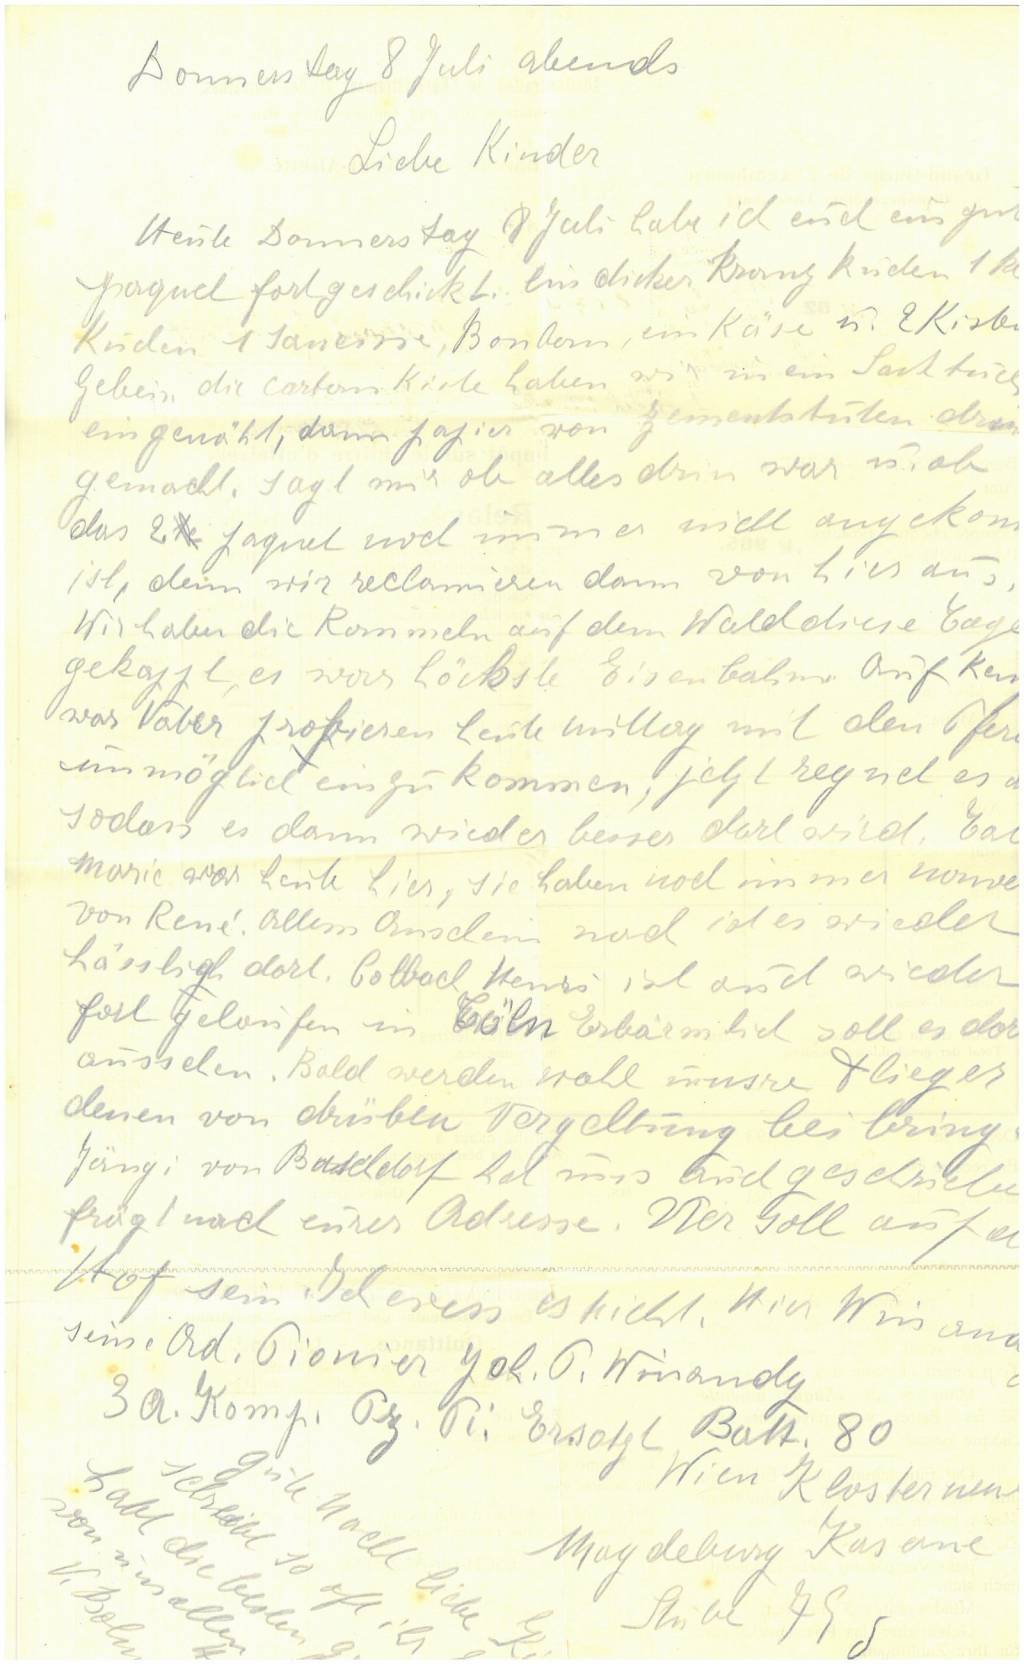 Donnerstag 8 Juli abends
Liebe Kinder
Heute Donnerstag 8 Juli habe ich euch ein gut
paquet fortgeschickt. Ein dicker Kranz Kuchen 1
Kuchen 1 saucisse, Bonbom, ein Käse u. 2 Kisten
die carton Kiste haben wir in ein Sacktuch
eingenäht, dann papier von zementstuten drin
gemacht. sagt mir ob alles drin war u. ob
das 2te paquet noch immer nicht angekom
ist, denn wir reclamieren dann von hier aus.
Wir haben die Rommeln auf dem Wald diese Tage
gekappt, es war höchste Eisenbahn. Auf
war Vater probieren heute mittag mit den Pfer
unmöglich einzukommen, jetzt regnet es
sodass es dann wieder besser dort wird.
Marie war heute hier, sie haben noch immer
von René. Allem Anschein nach ist es wieder
hässligh dort. Colbach Henri ist auch wieder
fort gelaufen in Cöln Erbärmlich soll es dor
aussehen. Bald werden wohl unsre Flieger
denen von drüben Vergeltung bei bring
Jängi von hat uns auch geschriebe
frägt nach eurer Adresse. Wer soll auf d
Hof sein. Ich weiss es nicht. Hier Winand
seine Ad. Pionier Joh. P. Winandy
3 A. Komp. Pz. Pi. Ersatzt Batt. 80
Wien Klosterneu
Magdeburg Kasane
Stube 79
gute Nacht liebe Ki
schreibt so oft ihr
habt die besten
von uns allen
V. Bohn